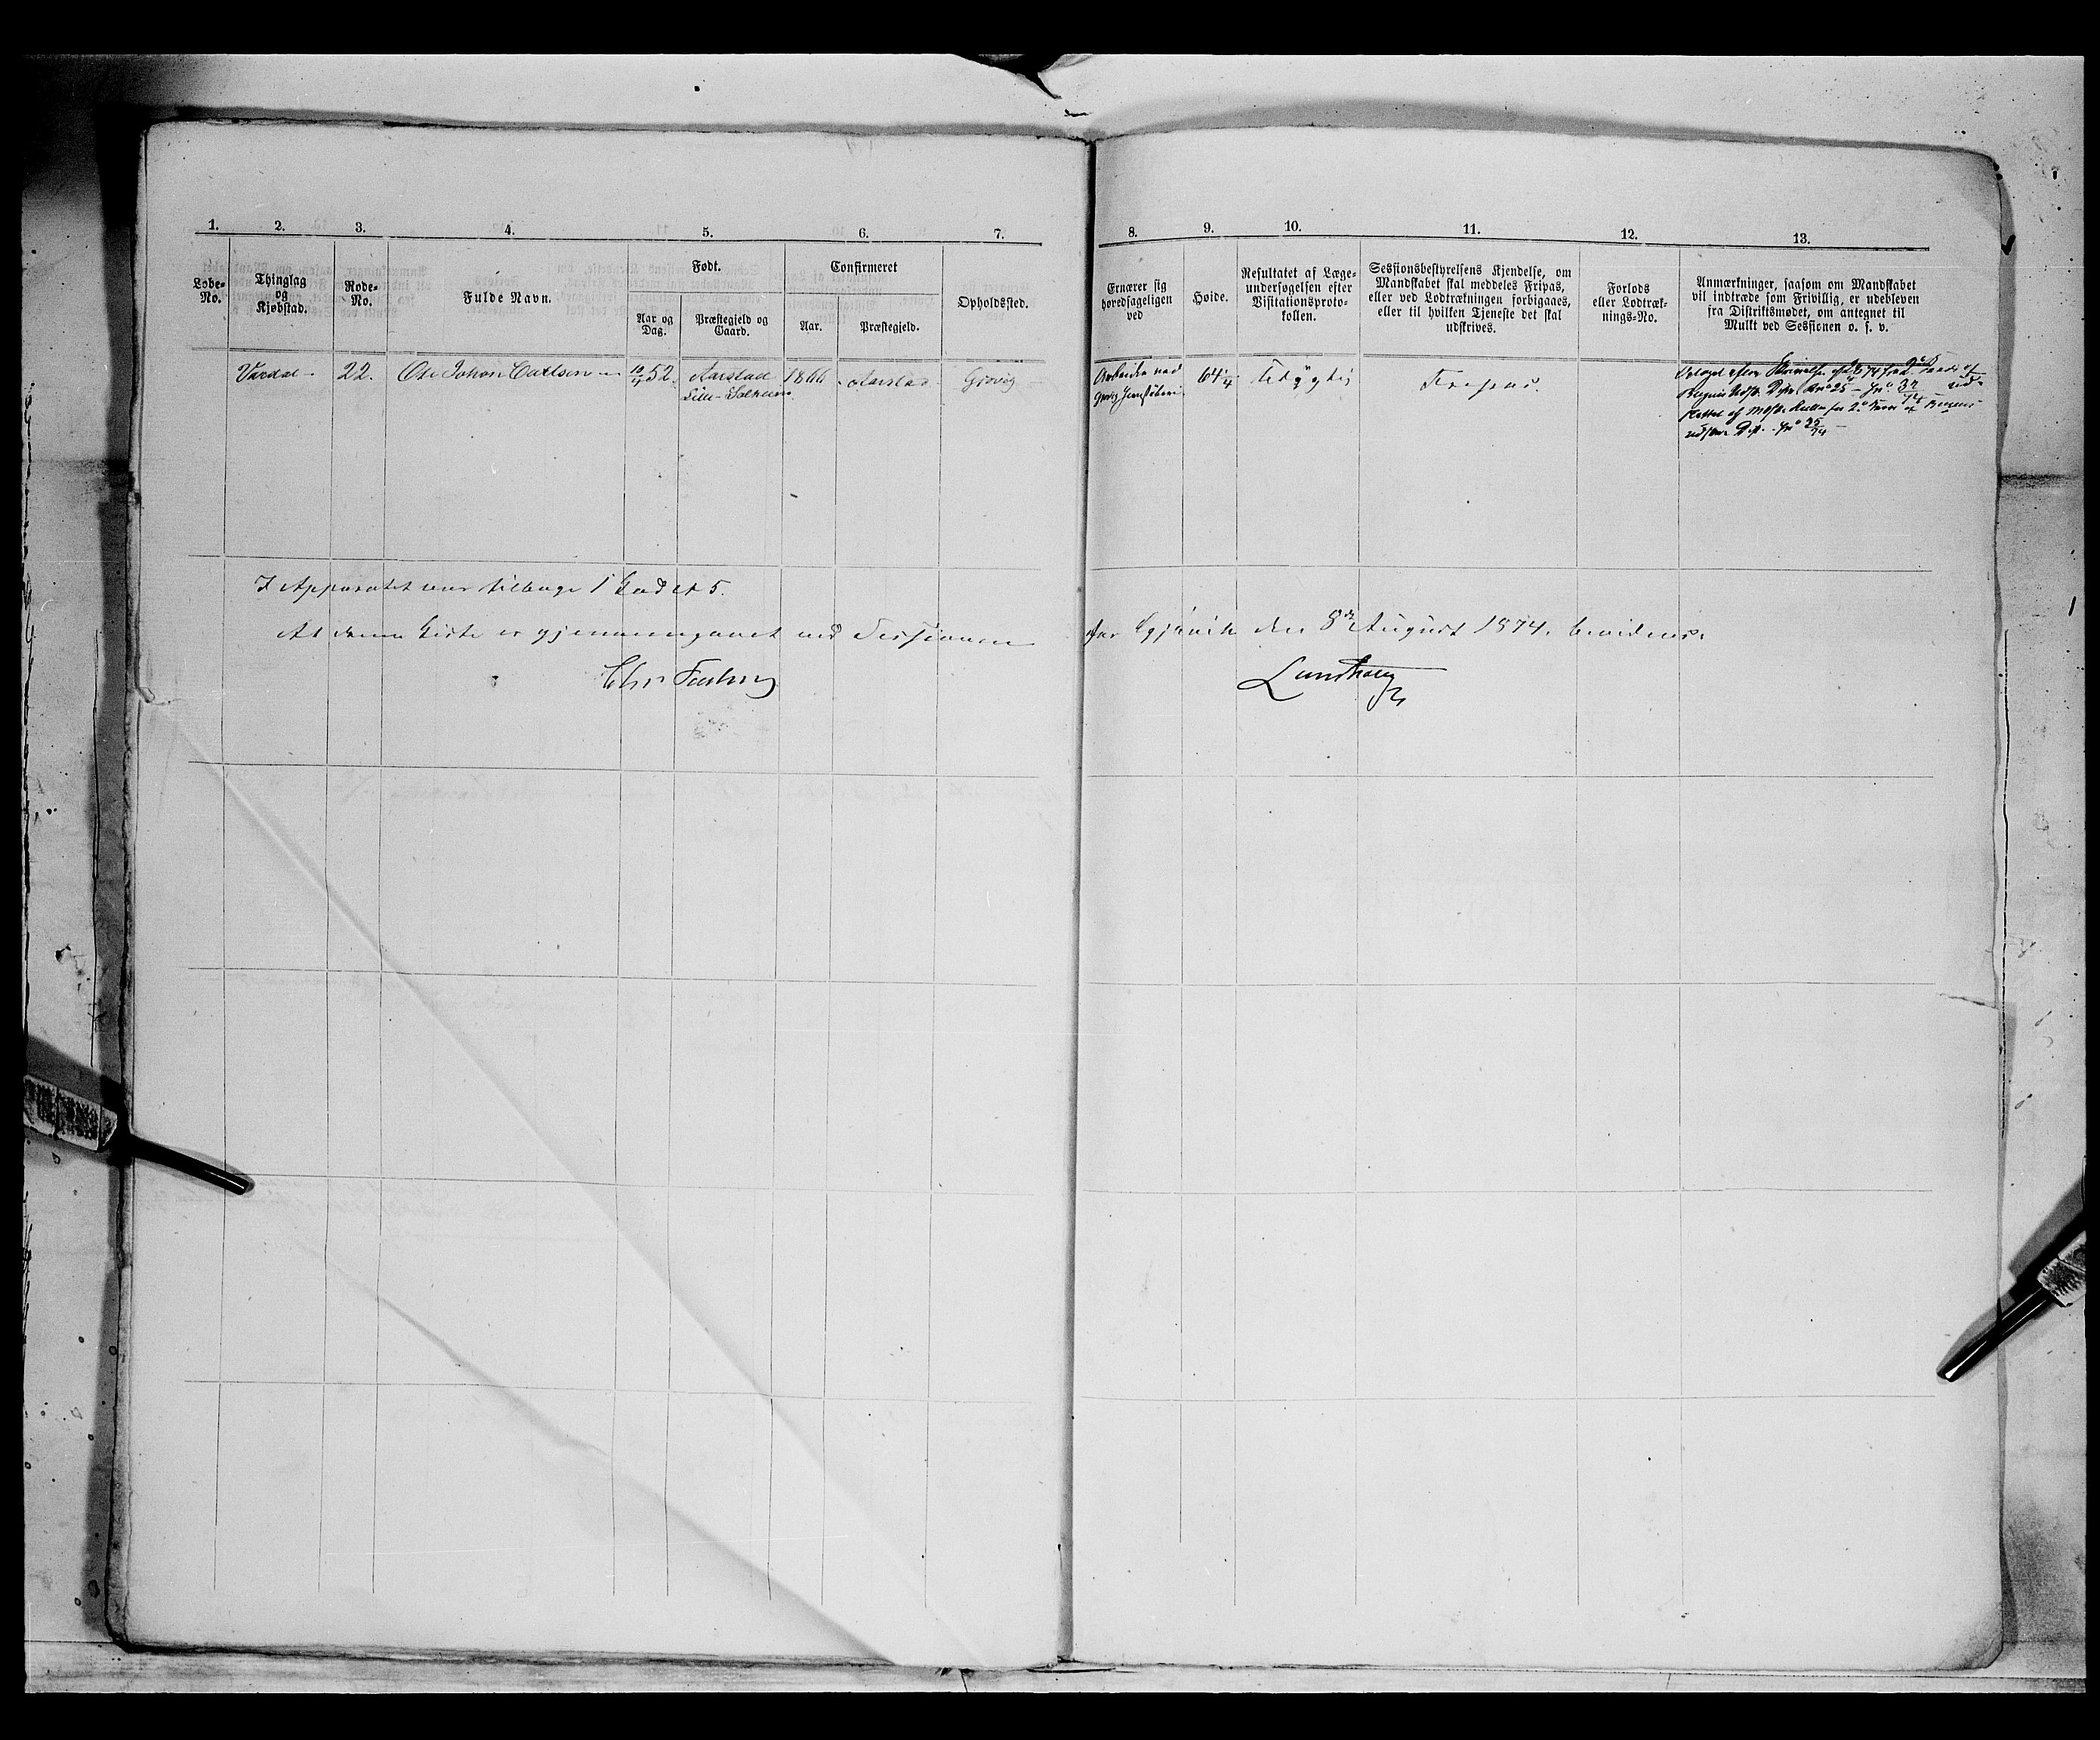 1. 2. 3. 4. 5. 6. 7. 8. 9. 10. 11. 12. 13.
Løbe-
No.
Thinglag
og
Kjøbstad.
Rode-
No.
Fulde Navn.
Født.
Aar og
Dag.
Præstegjeld og
Gaard.
Confirmeret
Aar.
Præstegjeld.
Opholdssted.
Ernærer sig
hovedsageligen
ved
Høide.
Resultatet af Læge-
undersøgelsen efter
Visitationsproto-
kollen.
Sessionsbestyrelsens Kjendelse, om
Mandskabet skal meddeles Fripas,
eller ved Lodtrækningen forbigaaes,
eller til hvilken Tjeneste det skal
udskrives.
Forlods
eller Lodtræk-
nings-No.
Anmærkninger, saasom om Mandskabet
vil indtræde som Frivillig, er udebleven
fra Distriktsmødet, om antegnet til
Mulkt ved Sessionen o. s. v.
Vardal 22. Ole Johan Carlsen 52. Aarstad 1866 Aarstad Gjøvig
Arbeider ved 64 1/4 Udygtig Fripas.
I Apparatet var tilbage 1 Cadet 5.
At denne Liste er gjennemgaaet ved Sessionen for Gjøvik den 8de August 1874, bevidnes.
Chr